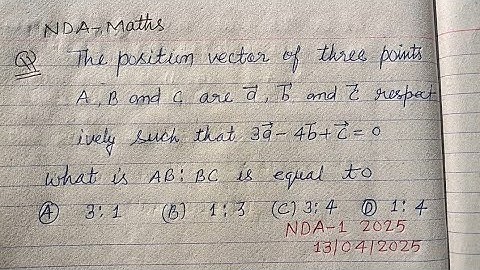 NDA-Maths
Q The position vector of three points
A, B and C are a⃗, b⃗ and c⃗ respect
ively such that 3a⃗ - 4b⃗ + c⃗ = 0
what is AB : BC is equal to
(A) 3:1 (B) 1:3 (C) 3:4 (D) 1:4
NDA-1 2025
13/04/2025